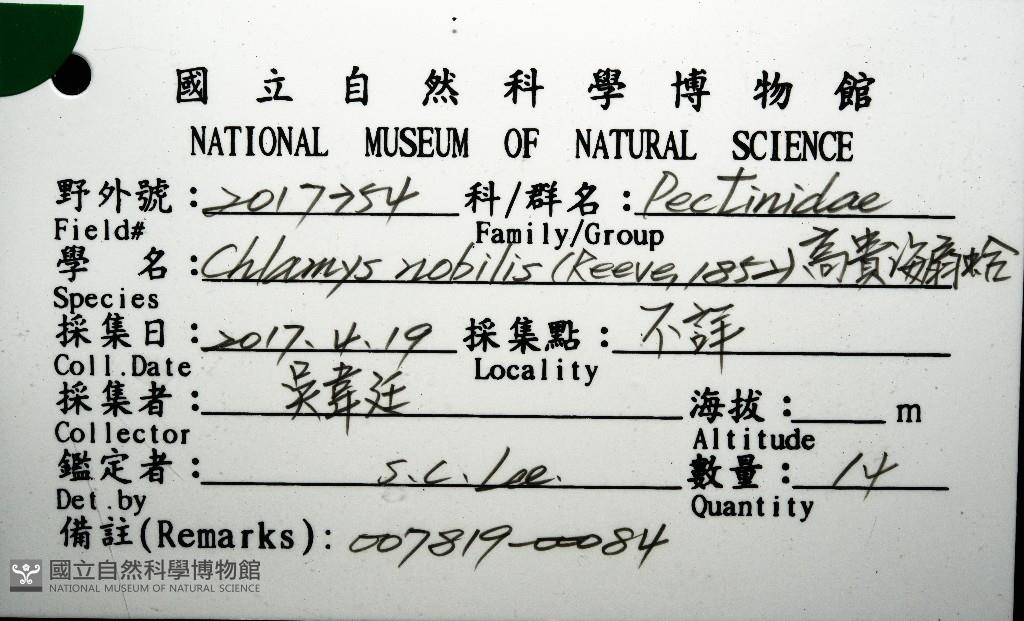 國立自然科學博物館
NATIONAL MUSEUM OF NATURAL SCIENCE
野外號：2017754 科/群名：Pectinidae
Field# Family/Group
學名：Chlamys nobilis (Reeve, 1852) 高貴海扇蛤
Species
採集日：2017.4.19 採集點：不詳
Coll.Date Locality
採集者：吳韋廷 海拔：m
Collector Altitude
鑑定者：S.C. Lee. 數量：14
Det.by Quantity
備註(Remarks)：007819-00084
國立自然科學博物館
NATIONAL MUSEUM OF NATURAL SCIENCE